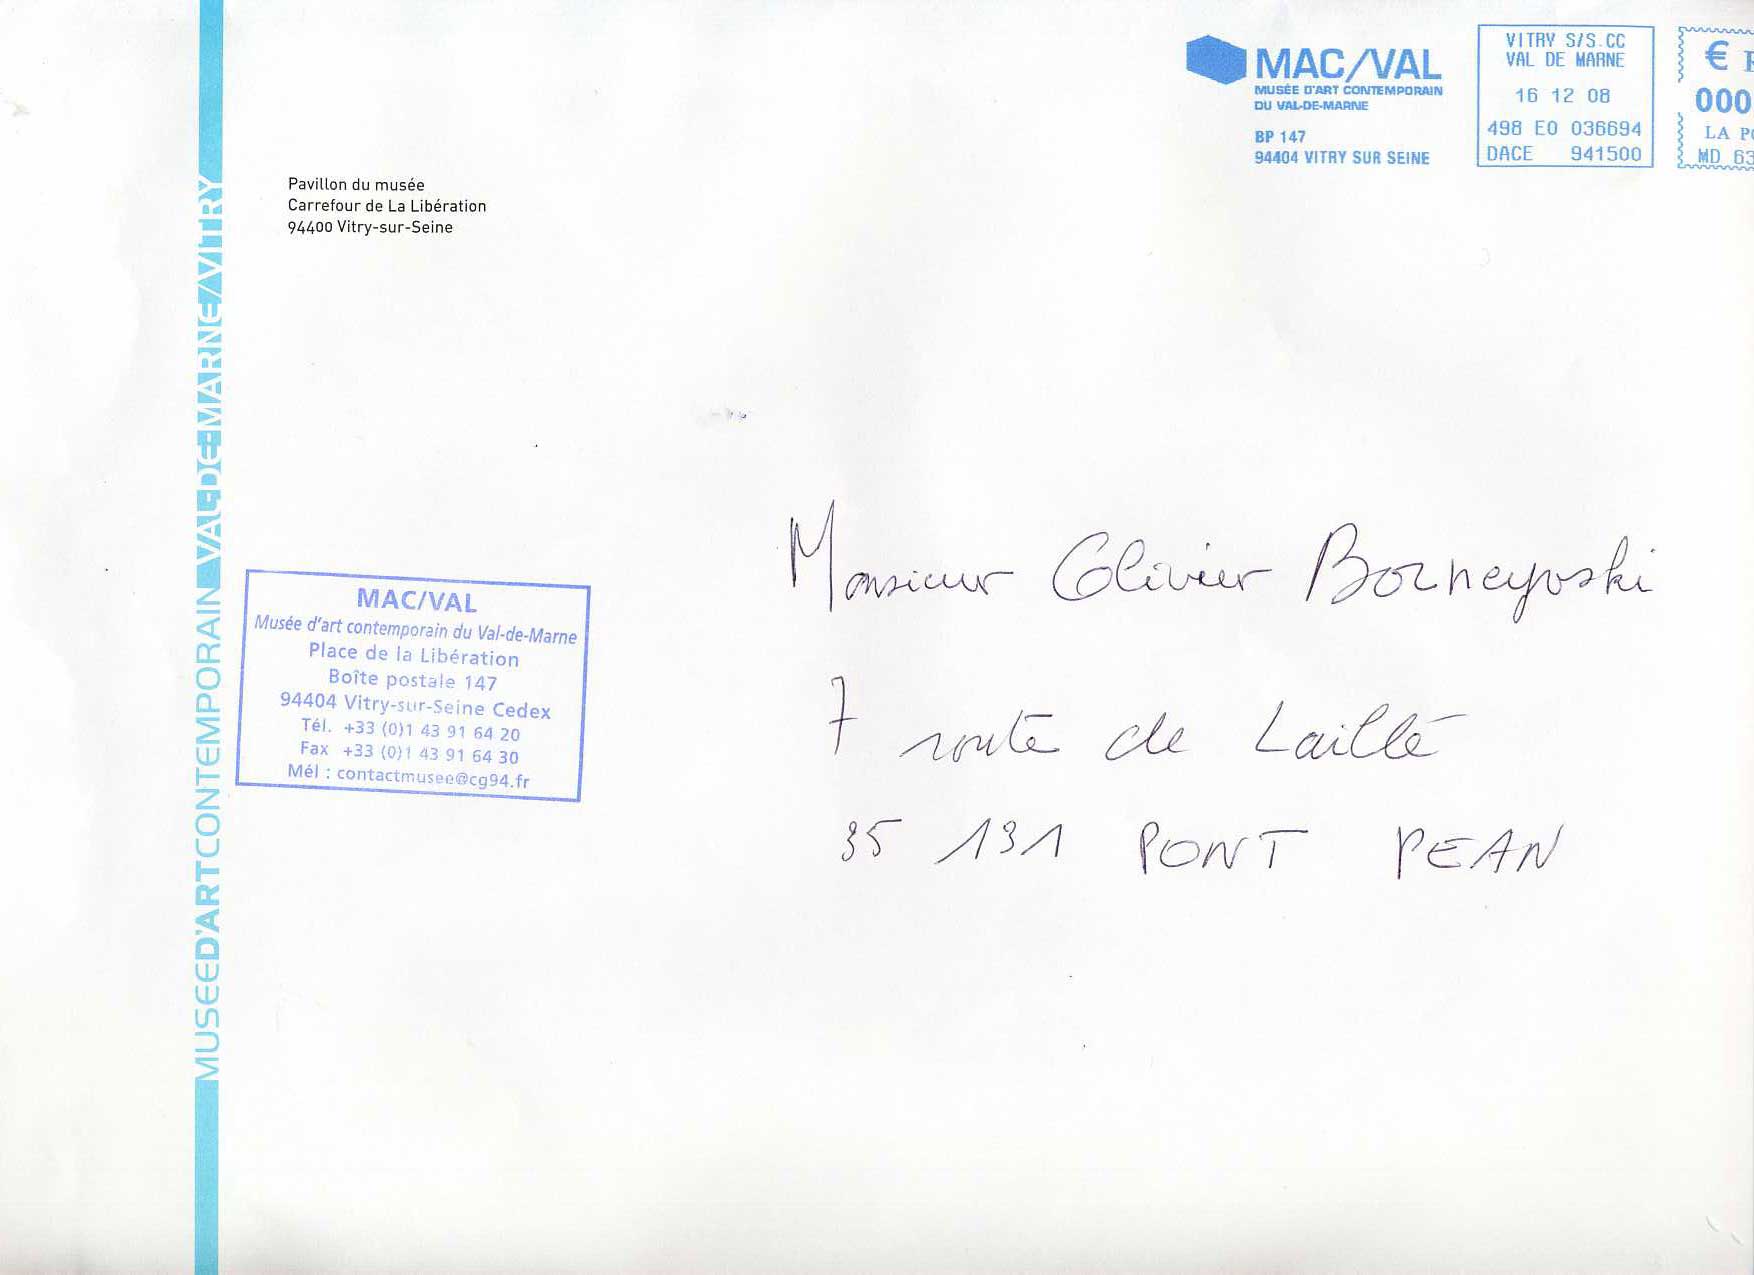 MAC/VAL
MUSÉE D'ART CONTEMPORAIN
DU VAL-DE-MARNE
BP 147
94404 VITRY SUR SEINE
VITRY S/S.CC
VAL DE MARNE
16 12 08
498 E0 036694
DACE 941500
€
000
LA
MD 63
Pavillon du musée
Carrefour de La Libération
94400 Vitry-sur-Seine
MUSEED'ARTCONTEMPORAINVAL-DE-MARNE/VITRY
MAC/VAL
Musée d'art contemporain du Val-de-Marne
Place de la Libération
Boîte postale 147
94404 Vitry-sur-Seine Cedex
Tél. +33 (0)1 43 91 64 20
Fax +33 (0)1 43 91 64 30
Mél : contactmusee@cg94.fr
Monsieur Olivier
7 route de Laillé
35 131 PONT PEAN